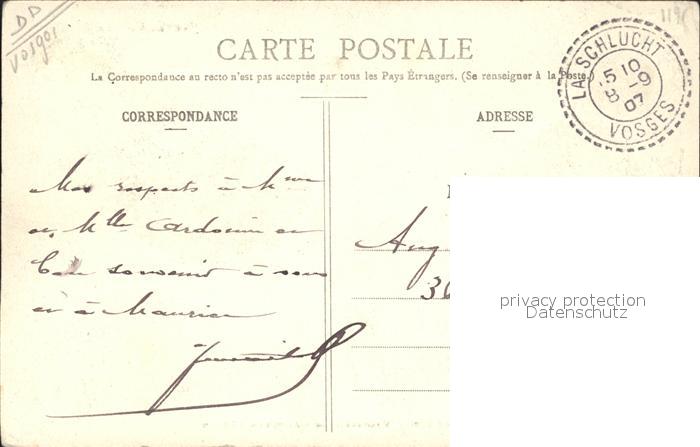 DD
Vosges
119
CARTE POSTALE
La Correspondance au recto n'est pas acceptée par tous les Pays Étrangers. (Se renseigner à la Poste.)
LA SCHLUCHT
5 10
8 -9
07
VOSGES
CORRESPONDANCE
ADRESSE
Mes respects à Mme
et Mlle Cardonin et
bon souvenir à vous
et à Maurice
Aug
36
privacy protection
Datenschutz